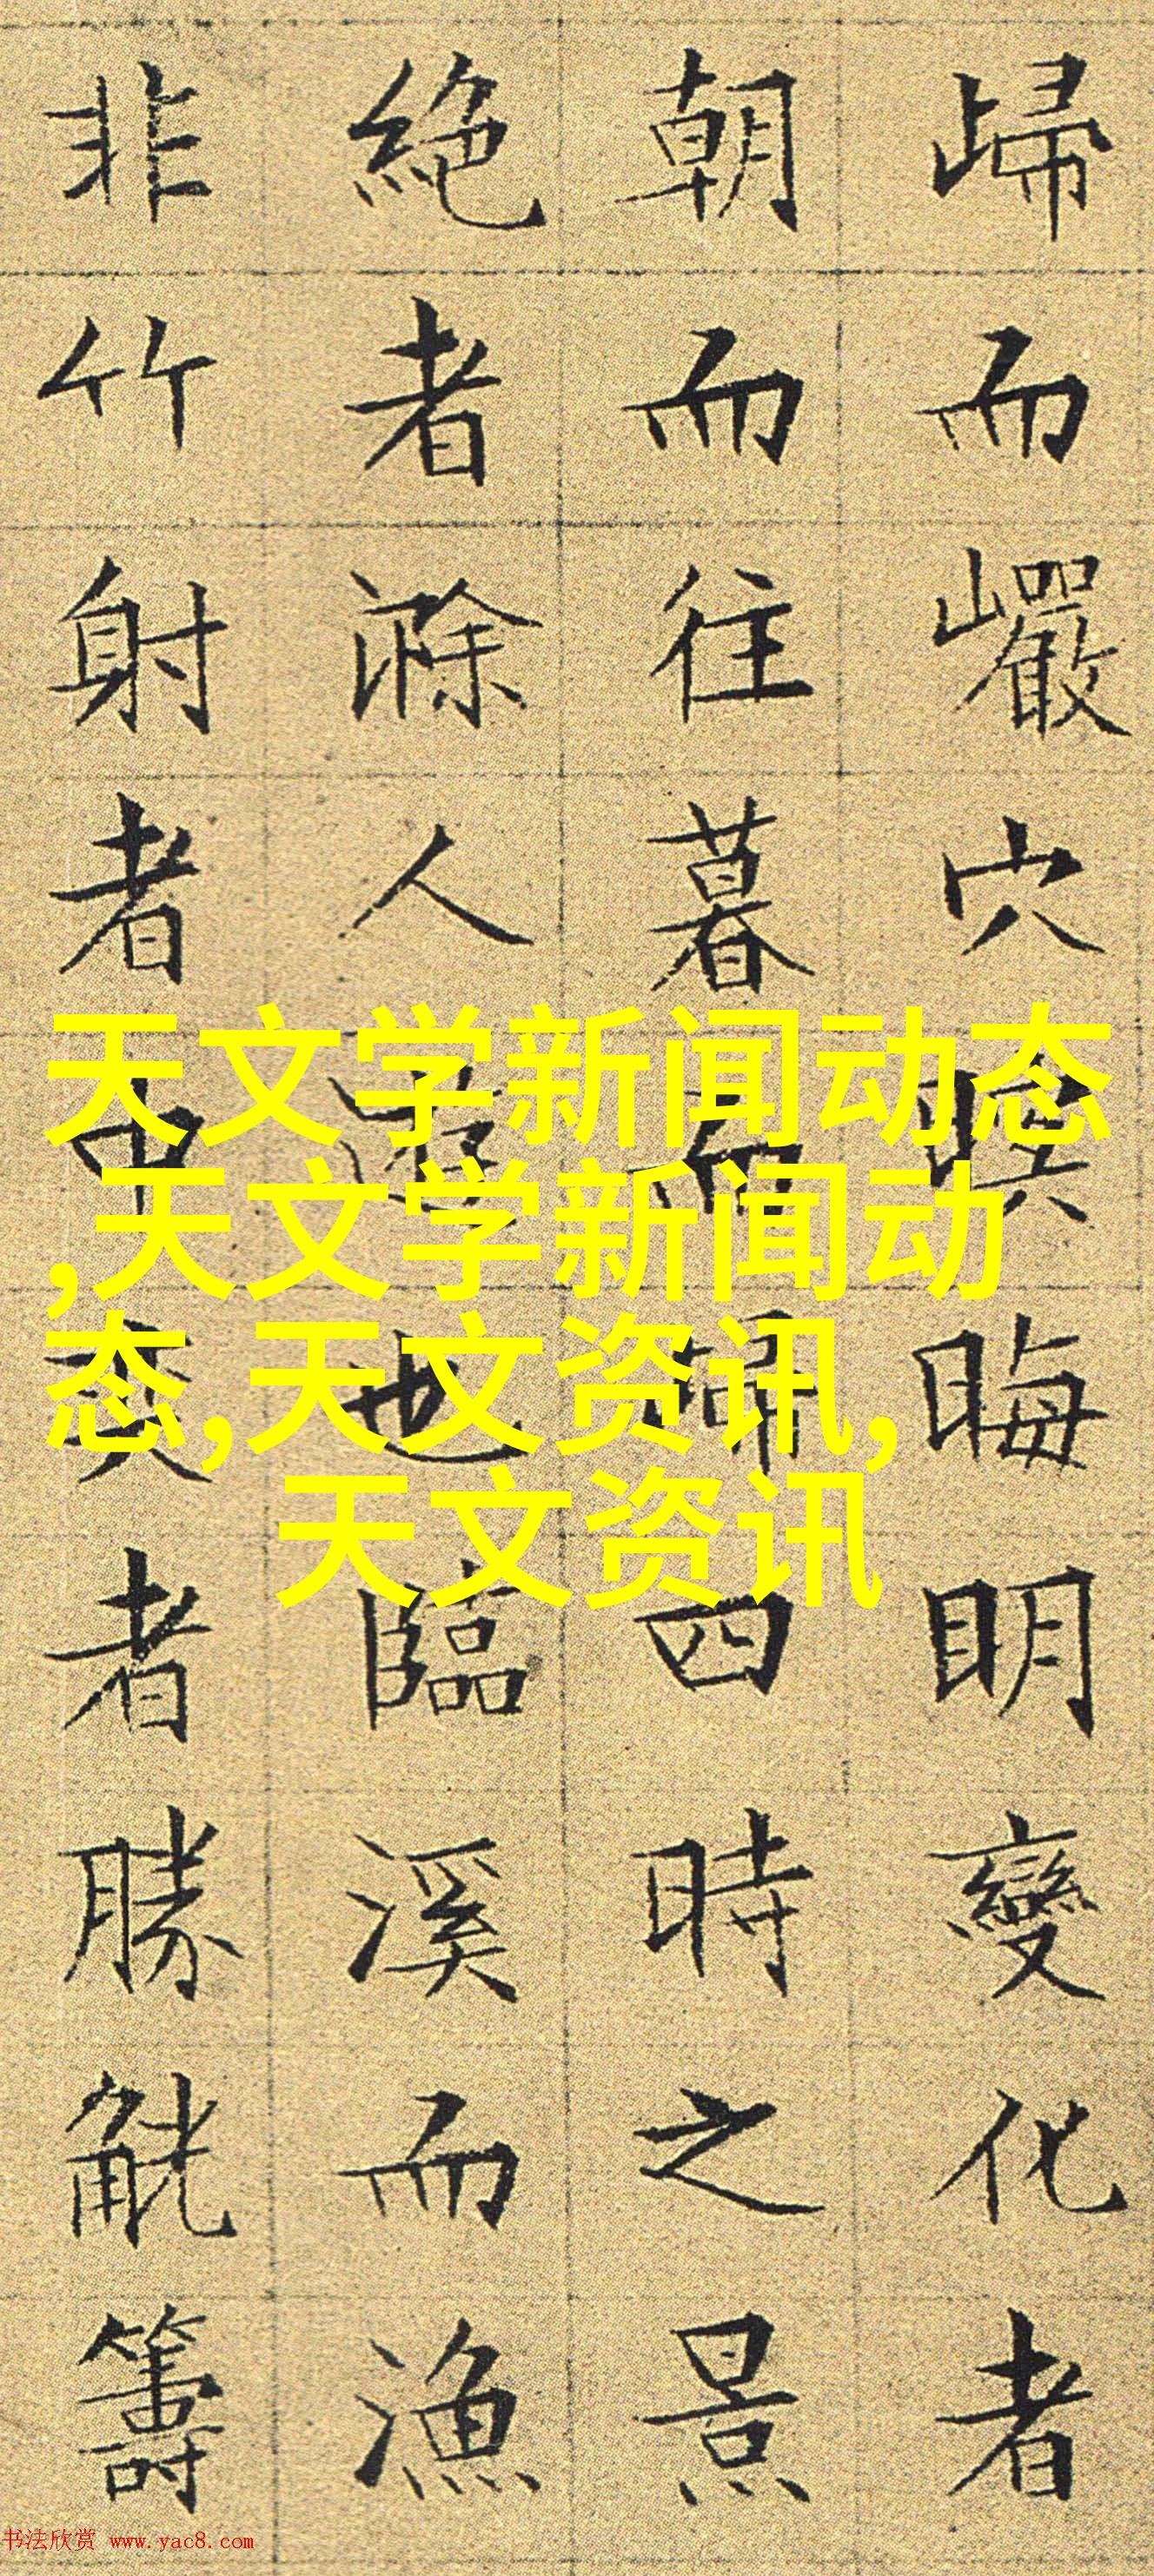 歸而巖穴暝晦明變化者
朝而往暮而歸四時之景
絶者滁人遊也臨溪而漁
非竹射者中奕者勝觥籌
天文学新闻动态
,天文学新闻动
态,天文资讯,
天文资讯
书法欣赏 www.yac8.com